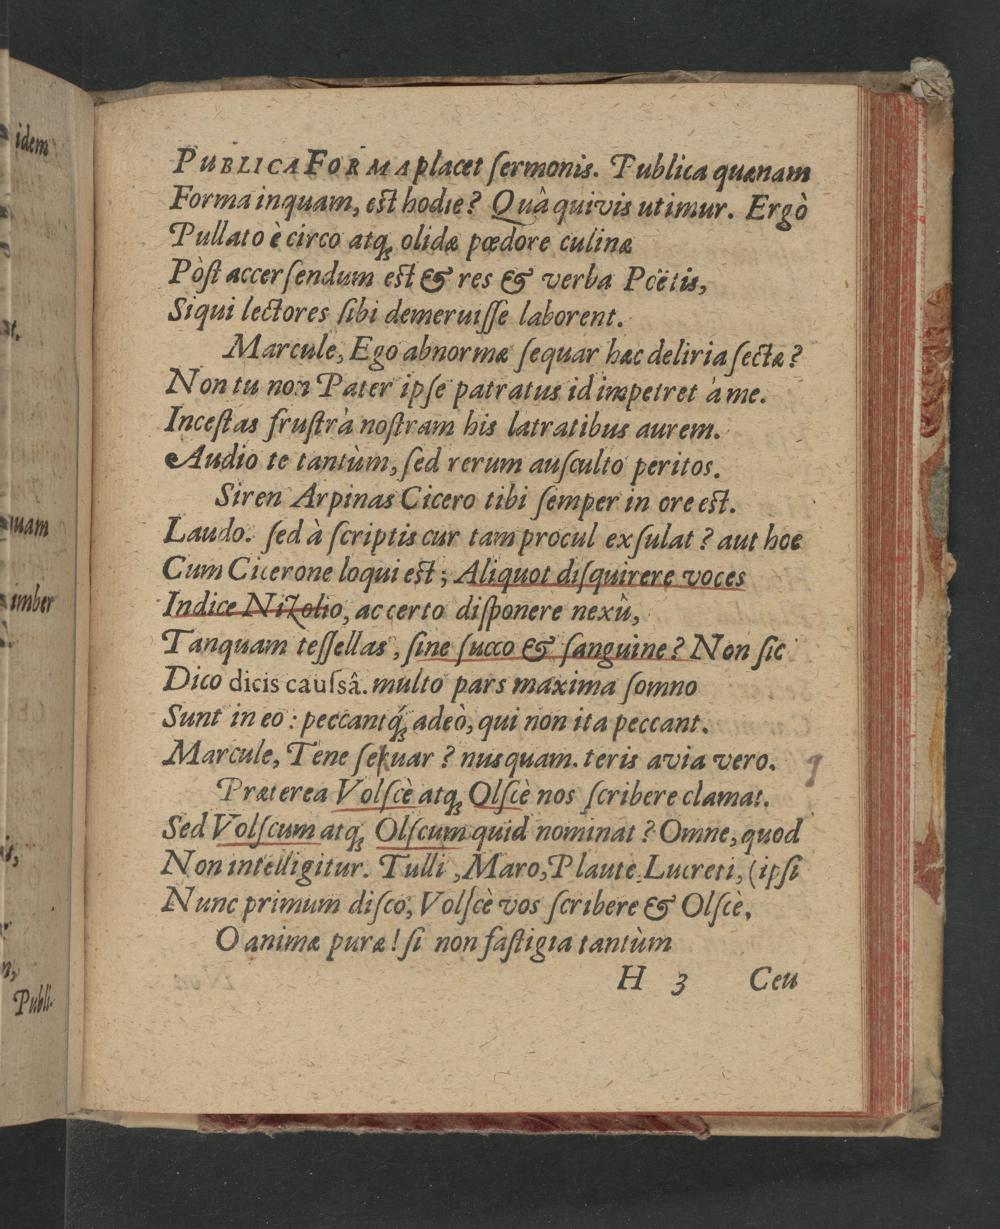 idem
quam
imber
Publi-
PUBLICA FORMA placet ſermonis. Publica quænam
Forma inquam, eſt hodie? Quâ quivis utimur. Ergò
Pullato è circo atq; olidæ pœdore culinæ
Pòſt accerſendum eſt & res & verba Poëtis,
Siqui lectores ſibi demeruiſſe laborent.
Marcule, Ego abnormæ ſequar hæc deliria ſectæ?
Non tu non Pater ipſe patratus id impetret à me.
Inceſtas fruſtrà noſtram his latratibus aurem.
Audio te tantùm, ſed rerum auſculto peritos.
Siren Arpinas Cicero tibi ſemper in ore eſt.
Laudo. ſed à ſcriptis cur tam procul exſulat? aut hoc
Cum Cicerone loqui eſt; Aliquot diſquirere voces
Indice Nizolio, ac certo diſponere nexû,
Tanquam teſſellas, ſine ſucco & ſanguine? Non ſic
Dico dicis cauſsâ. multo pars maxima ſomno
Sunt in eo: peccantq́; adeò, qui non ita peccant.
Marcule, Tene ſequar? nusquam. teris avia vero.
Præterea Volſcè atq; Olſcè nos ſcribere clamat.
Sed Volſcum atq; Olſcum quid nominat? Omne, quod
Non intelligitur. Tulli, Maro, Plaute, Lucreti, (ipſi
Nunc primum diſco, Volſcè vos ſcribere & Olſcè,
O animæ puræ! ſi non faſtigia tantùm
H 3 Ceu